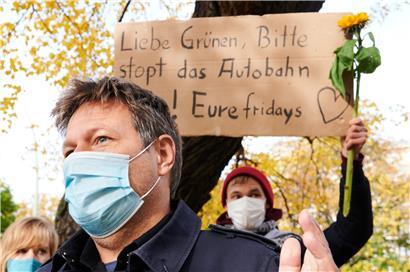 Liebe Grünen, Bitte
stopt das Autobahn
! Eure fridays